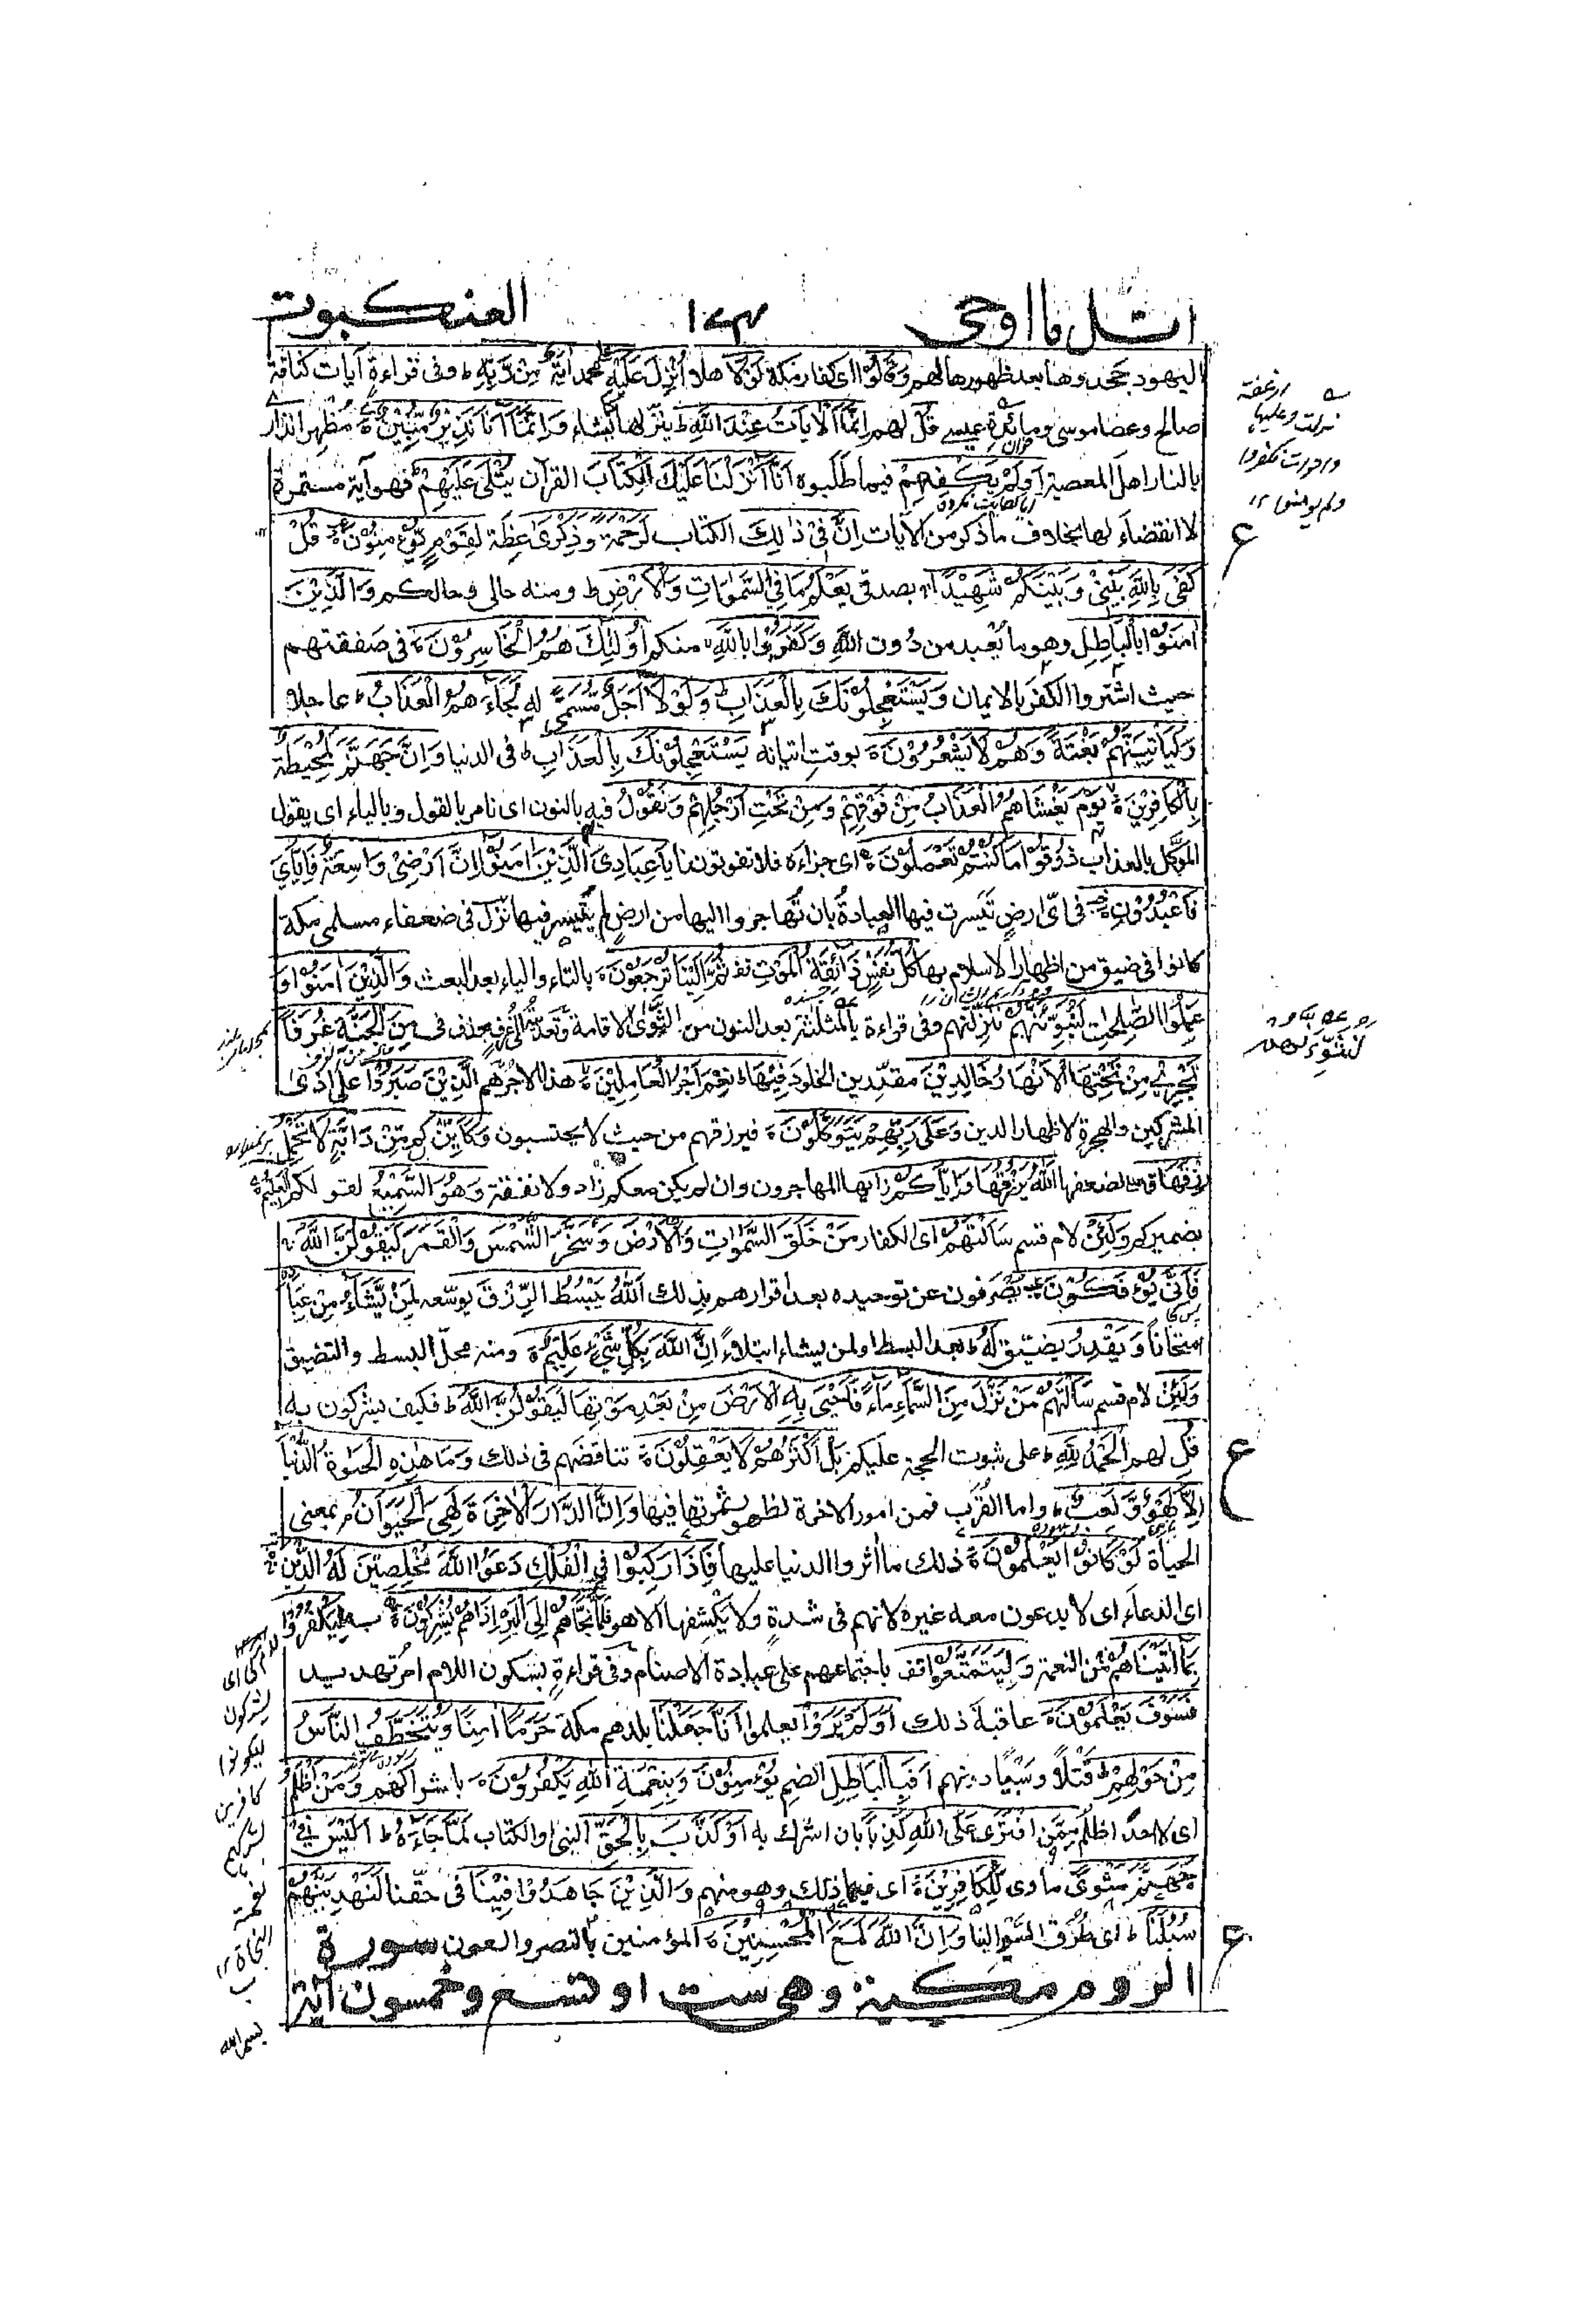 اتل ما اوحى
العنكبوت
اليهود جحدوها بعد ظهورها لهم وَقَالُوْا اى كفار مكة لَوْلَا هلا اُنْزِلَ عَلَيْهِ محمد آيَةٌ مِنْ رَّبِّهٖ ط وفى قراءة آيات كناقة
صالح وعصا موسى ومائدة عيسى قُلْ لهم اِنَّمَا الْآيَاتُ عِنْدَ اللّٰهِ ط ينزلها كيف يشاء وَاِنَّمَا اَنَا نَذِيْرٌ مُّبِيْنٌ مُظهر انذار
بالنار اهل المعصية اَوَلَمْ يَكْفِهِمْ فيما طلبوه اَنَّا اَنْزَلْنَا عَلَيْكَ الْكِتَابَ القرآن يُتْلٰى عَلَيْهِمْ فهو آية مستمرة
لا انقضاء لها بخلاف ما ذكر من الآيات اِنَّ فِىْ ذٰلِكَ الكتاب لَرَحْمَةً وَّذِكْرٰى عِظَة لِقَوْمٍ يُّؤْمِنُوْنَ قُلْ
كَفٰى بِاللّٰهِ بَيْنِىْ وَبَيْنَكُمْ شَهِيْدًا بصدقى يَعْلَمُ مَا فِى السَّمٰوَاتِ وَالْاَرْضِ ط ومنه حالى وحالكم وَالَّذِيْنَ
اٰمَنُوْا بِالْبَاطِلِ وهو ما يُعْبد من دُون الله وَكَفَرُوْا بِاللّٰهِ منكم اُولٰئِكَ هُمُ الْخَاسِرُوْنَ فى صَفقتهم
حيث اشتروا الكفر بالايمان وَيَسْتَعْجِلُوْنَكَ بِالْعَذَابِ وَلَوْلَا اَجَلٌ مُّسَمًّى له لَجَاءَهُمُ الْعَذَابُ ط عاجلا
وَلَيَاْتِيَنَّهُمْ بَغْتَةً وَّهُمْ لَا يَشْعُرُوْنَ بوقت اتيانه يَسْتَعْجِلُوْنَكَ بِالْعَذَابِ ط فى الدنيا وَاِنَّ جَهَنَّمَ لَمُحِيْطَةٌ
بِالْكَافِرِيْنَ يَوْمَ يَغْشَاهُمُ الْعَذَابُ مِنْ فَوْقِهِمْ وَمِنْ تَحْتِ اَرْجُلِهِمْ وَنَقُوْلُ فيه بالنون اى نامر بالقول وبالياء اى يقول
المؤكّل بالعذاب ذُوْقُوْا مَا كُنْتُمْ تَعْمَلُوْنَ اى جزاءه فلا تفوتوننا يَا عِبَادِىَ الَّذِيْنَ اٰمَنُوْا اِنَّ اَرْضِىْ وَاسِعَةٌ فَاِيَّايَ
فَاعْبُدُوْنِ فى اىّ ارض تيسرت فيها العبادة بان تُهاجروا اليها من ارض لم يتيسر فيها نزل فى ضعفاء مسلمى مكة
كانوا فى ضيق من اظهار الاسلام بها كُلُّ نَفْسٍ ذَائِقَةُ الْمَوْتِ ثُمَّ اِلَيْنَا تُرْجَعُوْنَ بالتاء والياء بعد البعث وَالَّذِيْنَ اٰمَنُوْا وَ
عَمِلُوا الصّٰلِحٰتِ لَنُبَوِّئَنَّهُمْ ننزلنّهم وفى قراءة بالمثلثة بعد النون من الثَّوٰى الاقامة وتعديته الى غُرف بحذف فى مِنَ الْجَنَّةِ غُرَفًا
تَجْرِيْ مِنْ تَحْتِهَا الْاَنْهَارُ خَالِدِيْنَ مقدّرين الخلود فِيْهَا ط نِعْمَ اَجْرُ الْعَامِلِيْنَ هذا الاجر هم الَّذِيْنَ صَبَرُوْا على اذى
المشركين والهجرة لاظهار الدين وَعَلٰى رَبِّهِمْ يَتَوَكَّلُوْنَ فيرزقهم من حيث لا يحتسبون وَكَاَيِّنْ كم مِّنْ دَابَّةٍ لَا تَحْمِلُ
رِزْقَهَا لضعفها اَللّٰهُ يَرْزُقُهَا وَاِيَّاكُمْ ايها المهاجرون وان لم يكن معكم زاد ولا نفقة وَهُوَ السَّمِيْعُ لقولكم الْعَلِيْمُ
بضميركم وَلَئِنْ لام قسم سَاَلْتَهُمْ اى الكفار مَنْ خَلَقَ السَّمٰوَاتِ وَالْاَرْضَ وَسَخَّرَ الشَّمْسَ وَالْقَمَرَ لَيَقُوْلُنَّ اللّٰهُ
فَاَنّٰى يُؤْفَكُوْنَ يُصْرَفون عن توحيده بعد اقرارهم بذلك اَللّٰهُ يَبْسُطُ الرِّزْقَ يوسّعه لِمَنْ يَّشَاءُ مِنْ عِبَادِهٖ
امتحانًا وَيَقْدِرُ يضيّق لَهُ ط بعد البسط او لمن يشاء ابتلاءً اِنَّ اللّٰهَ بِكُلِّ شَيْءٍ عَلِيْمٌ ومنه محلّ البسط والتضييق
وَلَئِنْ لام قسم سَاَلْتَهُمْ مَنْ نَزَّلَ مِنَ السَّمَاءِ مَاءً فَاَحْيٰى بِهِ الْاَرْضَ مِنْ بَعْدِ مَوْتِهَا لَيَقُوْلُنَّ اللّٰهُ ط فكيف يشركون به
قُلِ لهم الْحَمْدُ لِلّٰهِ ط على ثبوت الحجة عليكم بَلْ اَكْثَرُهُمْ لَا يَعْقِلُوْنَ تناقضهم فى ذلك وَمَا هٰذِهِ الْحَيٰوةُ الدُّنْيَا
اِلَّا لَهْوٌ وَّلَعِبٌ ط واما القُرَب فمن امور الاخرة لظهور ثمرتها فيها وَاِنَّ الدَّارَ الْاٰخِرَةَ لَهِىَ الْحَيَوَانُ بمعنى
الحياة لَوْ كَانُوْا يَعْلَمُوْنَ ذلك ما اثروا الدنيا عليها فَاِذَا رَكِبُوْا فِى الْفُلْكِ دَعَوُا اللّٰهَ مُخْلِصِيْنَ لَهُ الدِّيْنَ
اى الدعاء اى لا يدعون معه غيره لانهم فى شدة ولا يكشفها الا هو فَلَمَّا نَجَّاهُمْ اِلَى الْبَرِّ اِذَا هُمْ يُشْرِكُوْنَ به لِيَكْفُرُوْا
بِمَا اٰتَيْنَاهُمْ من النعمة وَلِيَتَمَتَّعُوْا باجتماعهم على عبادة الاصنام وفى قراءة بسكون اللام امر تهديد
فَسَوْفَ يَعْلَمُوْنَ عاقبة ذلك اَوَلَمْ يَرَوْا يعلموا اَنَّا جَعَلْنَا بلدهم مكة حَرَمًا اٰمِنًا وَّيُتَخَطَّفُ النَّاسُ
مِنْ حَوْلِهِمْ قتلًا وسبيًا دونهم اَفَبِالْبَاطِلِ الصنم يُؤْمِنُوْنَ وَبِنِعْمَةِ اللّٰهِ يَكْفُرُوْنَ باشراكهم وَمَنْ اَظْلَمُ
اى لا احد اظلم مِمَّنِ افْتَرٰى عَلَى اللّٰهِ كَذِبًا بان اشرك به اَوْ كَذَّبَ بِالْحَقِّ النبى او الكتاب لَمَّا جَاءَهُ ط اَلَيْسَ فِىْ
جَهَنَّمَ مَثْوًى ماوى لِّلْكَافِرِيْنَ اى فيها ذلك وهو منهم وَالَّذِيْنَ جَاهَدُوْا فِيْنَا فى حقّنا لَنَهْدِيَنَّهُمْ
سُبُلَنَا ط اى طُرُق السَّير الينا وَاِنَّ اللّٰهَ لَمَعَ الْمُحْسِنِيْنَ المؤمنين بالنصر والعون سورة
الروم مكية وهى ست او تسع وخمسون آية
كافرين
نعمة
النجاة ١٢
بسم الله